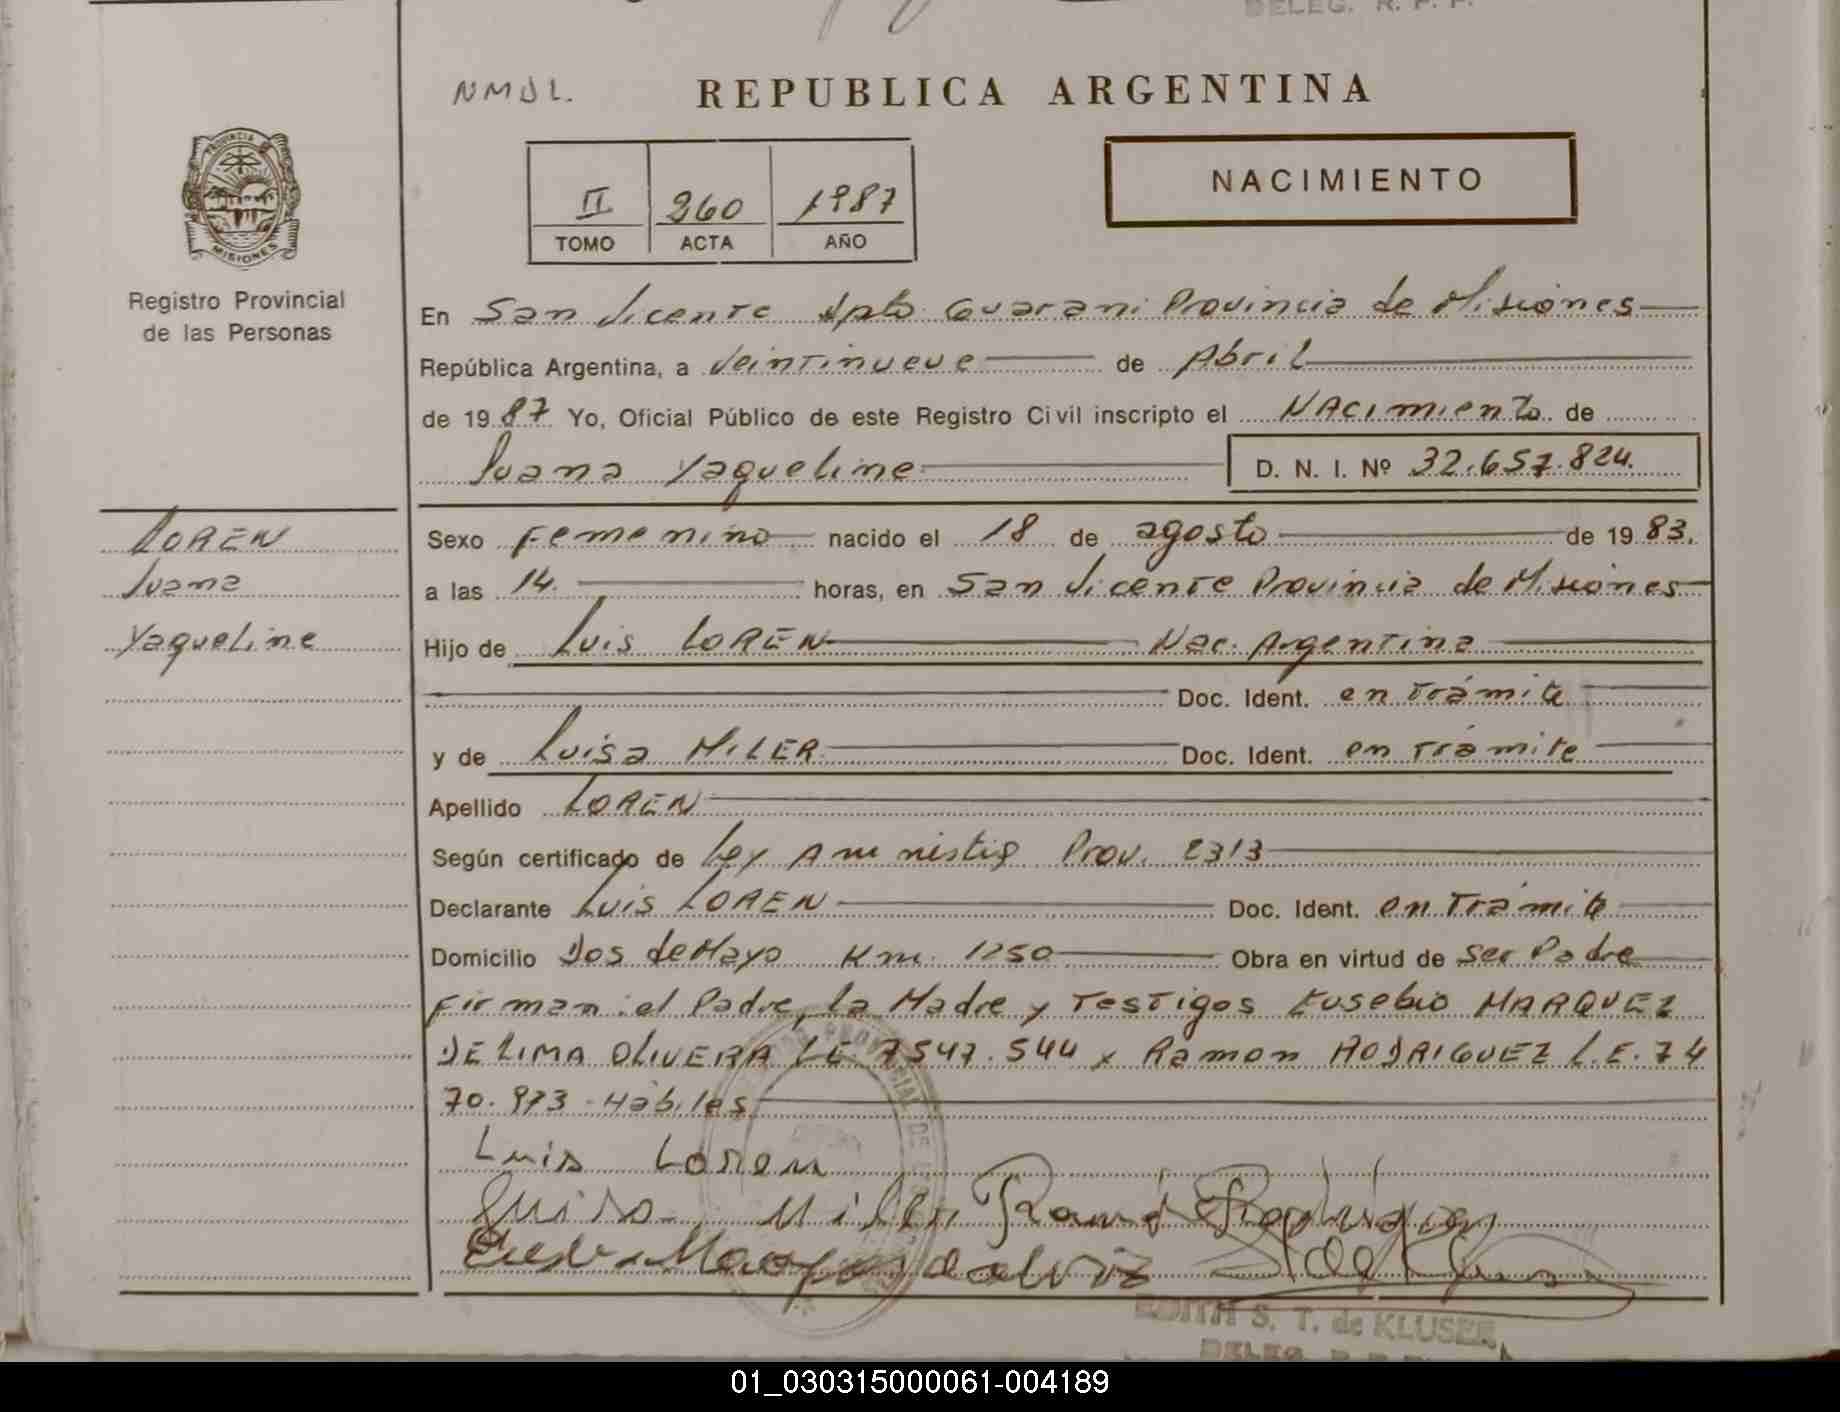 DELEG. R. P. P.
NMDL.
REPUBLICA ARGENTINA
PROVINCIA
MISIONES
II 260 1987
TOMO ACTA AÑO
NACIMIENTO
Registro Provincial
de las Personas
En San Vicente Dpto Guarani Provincia de Misiones
República Argentina, a Veintinueve de Abril
de 1987 Yo, Oficial Público de este Registro Civil inscripto el NAcimiento de
Juana Yaqueline D. N. I. Nº 32.657.824.
LOREN
Juana
Yaqueline
Sexo Femenino nacido el 18 de agosto de 1983.
a las 14. horas, en San Vicente Provincia de Misiones
Hijo de Luis LOREN Nac. Argentina
Doc. Ident. en trámite
y de Luisa MILER Doc. Ident. en trámite
Apellido LOREN
Según certificado de Ley Amnistia Prov. 2313
Declarante Luis LOREN Doc. Ident. en Trámite
Domicilio Dos de Mayo Km. 1250 Obra en virtud de ser Padre
Firman: el Padre, la Madre y Testigos Eusebio MARQUEZ
DE LIMA OLIVERA L.E. 7547.544 y Ramon RODRIGUEZ L.E. 74
70.973 - Hábiles
Luis Loren
Luisa Miler Ramon Rodriguez
EDITH S. T. de KLUSER
DELEG. R. P. P.
01_030315000061-004189